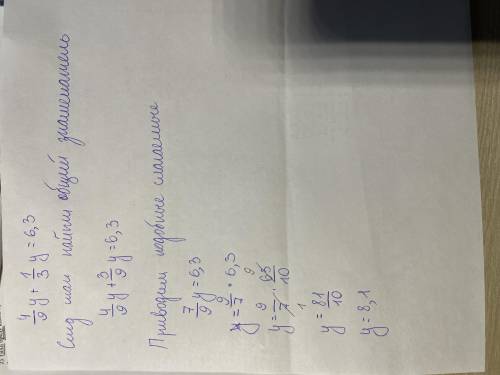 4/9 y + 1/3 y = 6,3
След шаг найти общий знаменатель
4/9 y + 3/9 y = 6,3
Приводим подобные слагаемые
7/9 y = 6,3
y = 9/7 * 6,3
y = 9/7 · 63/10
9
1
y = 81/10
y = 8,1